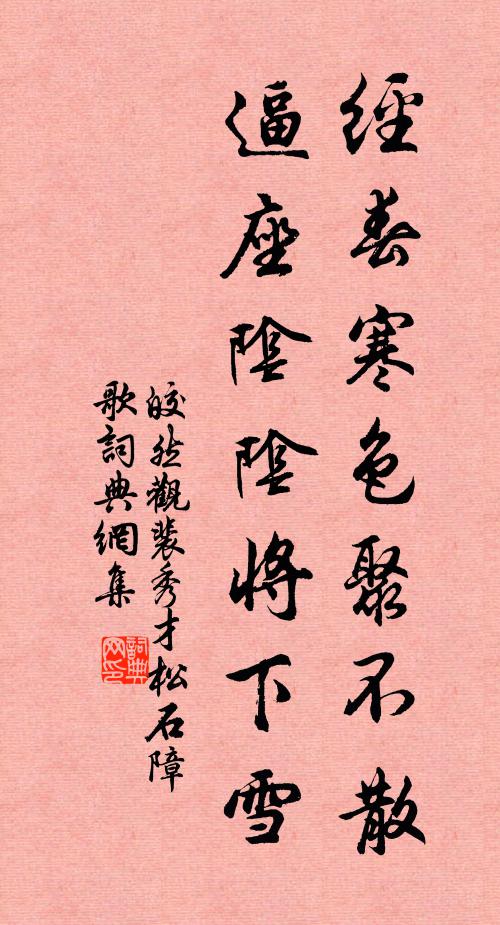 經春寒色聚不散
逼座陰陰將下雪
皎然觀裴秀才松石障
歌詞典網集
詞典网印